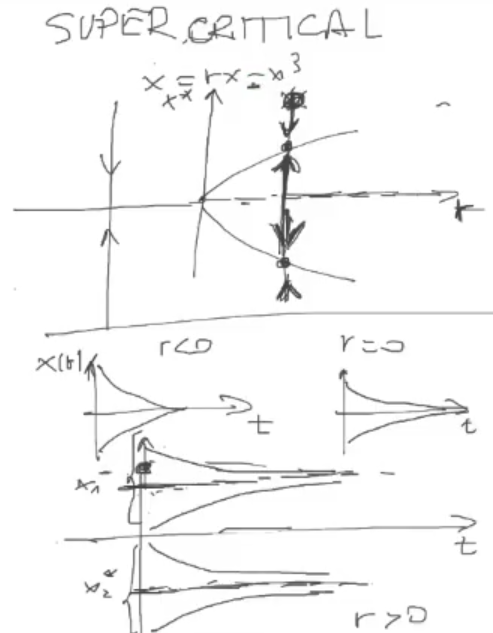 SUPERCRITICAL
ẋ = rx - x³
x*
r
r<0
r=0
x(t)
t
t
x₁*
t
x₂*
r>0